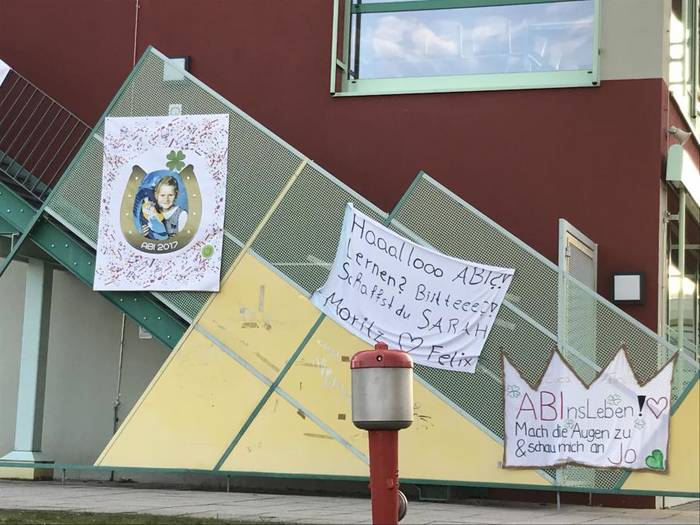 ABI 2017
Haaallooo ABI?!
Lernen? Bitteeee
Schaffst du SARAH
Moritz ♡ Felix
ABInsLeben!♡
Mach die Augen zu
& schau mich an Jo